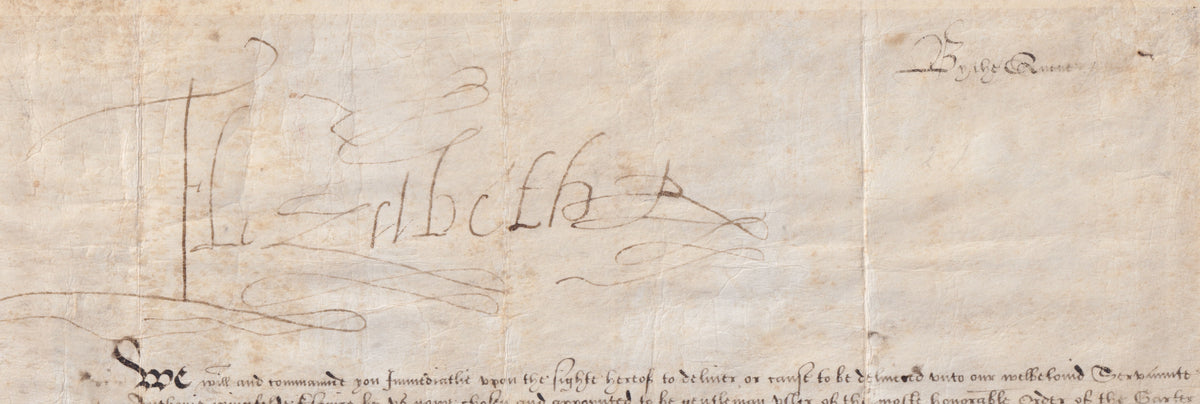 By the Quene
Elizabeth R
We will and commaunde you Immediatlie vpon the sighte hereof to deliuer or cause to be deliuered vnto our welbelouid Servaunte
by vs now chosen and appointed to be gentleman vssher of the moste honorable Order of the Garter